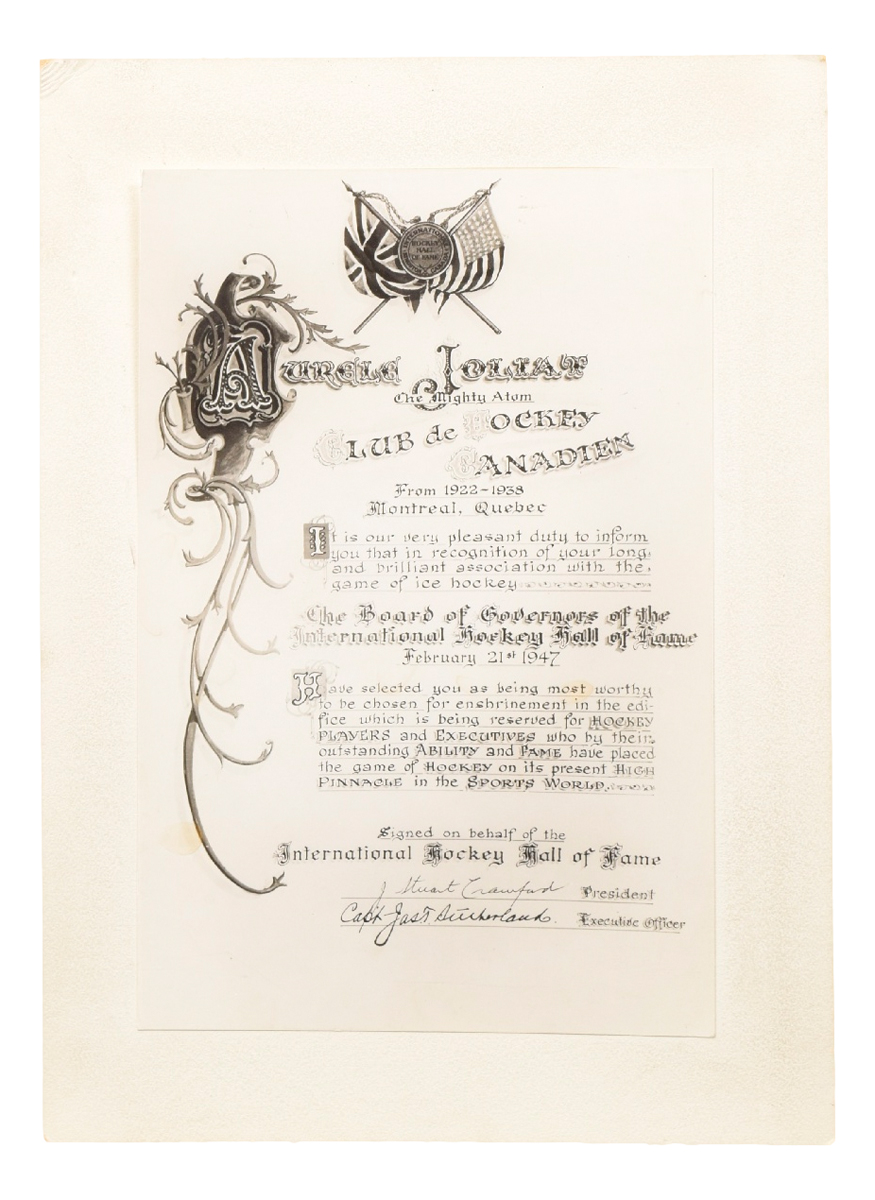 INTERNATIONAL
HOCKEY
HALL
OF FAME
AURELE JOLIAT
The Mighty Atom
CLUB de HOCKEY
CANADIEN
From 1922-1938
Montreal, Quebec
It is our very pleasant duty to inform
you that in recognition of your long,
and brilliant association with the
game of ice hockey
The Board of Governors of the
International Hockey Hall of Fame
February 21st 1947
Have selected you as being most worthy
to be chosen for enshrinement in the edi-
fice which is being reserved for HOCKEY
PLAYERS and EXECUTIVES who by their
outstanding ABILITY and FAME have placed
the game of HOCKEY on its present HIGH
PINNACLE in the SPORTS WORLD.
Signed on behalf of the
International Hockey Hall of Fame
J Stuart Crawford President
Capt Jas T Sutherland. Executive Officer